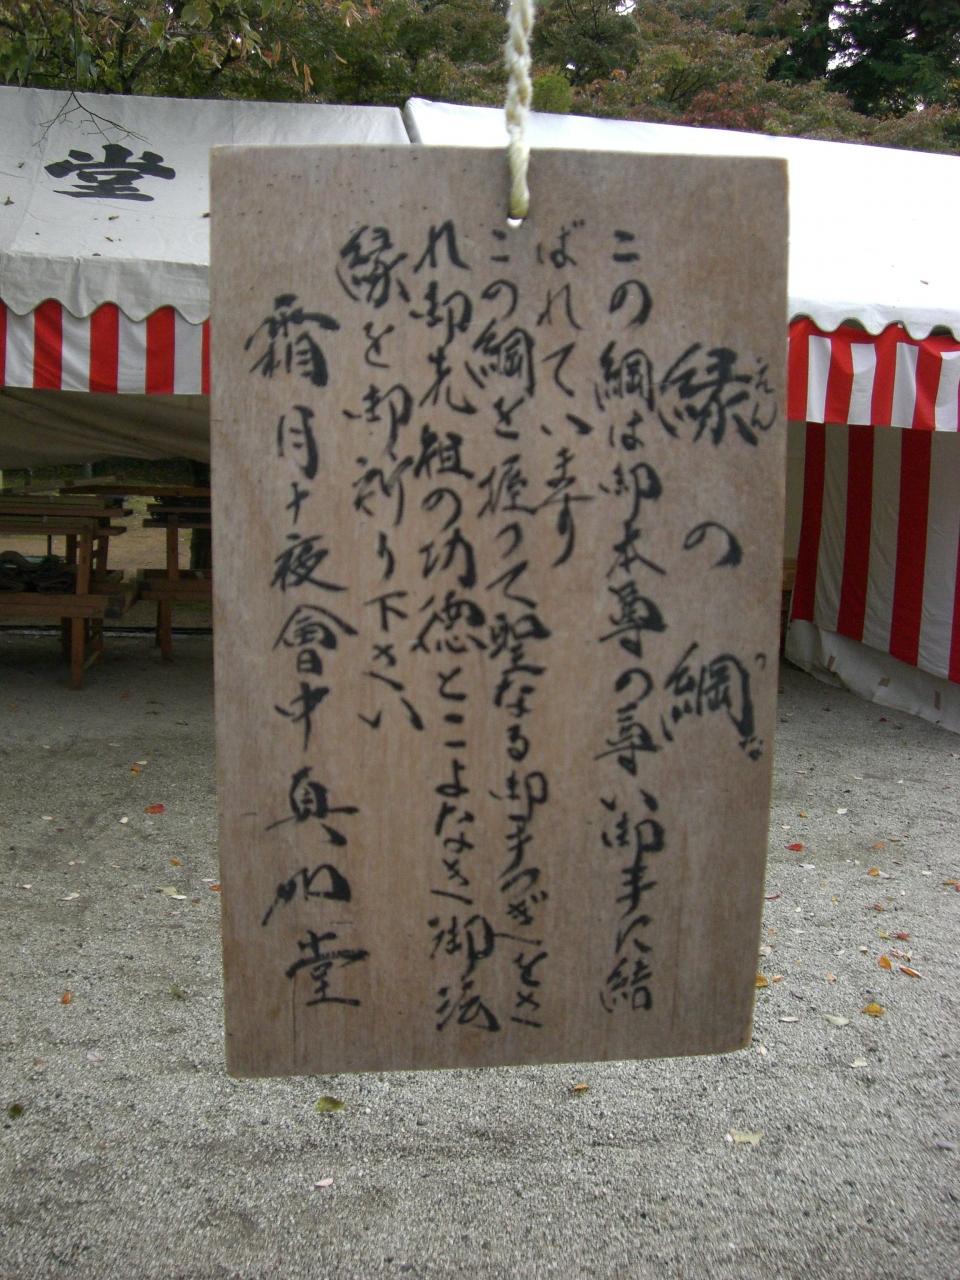 縁の綱
えん
つな
この綱は御本尊の尊い御手に結
ばれています
この綱を握つて聖なる御手つぎをさ
れ御先祖の功徳とこよなき御法
縁を御祈り下さい
霜月十夜會中 真如堂
堂